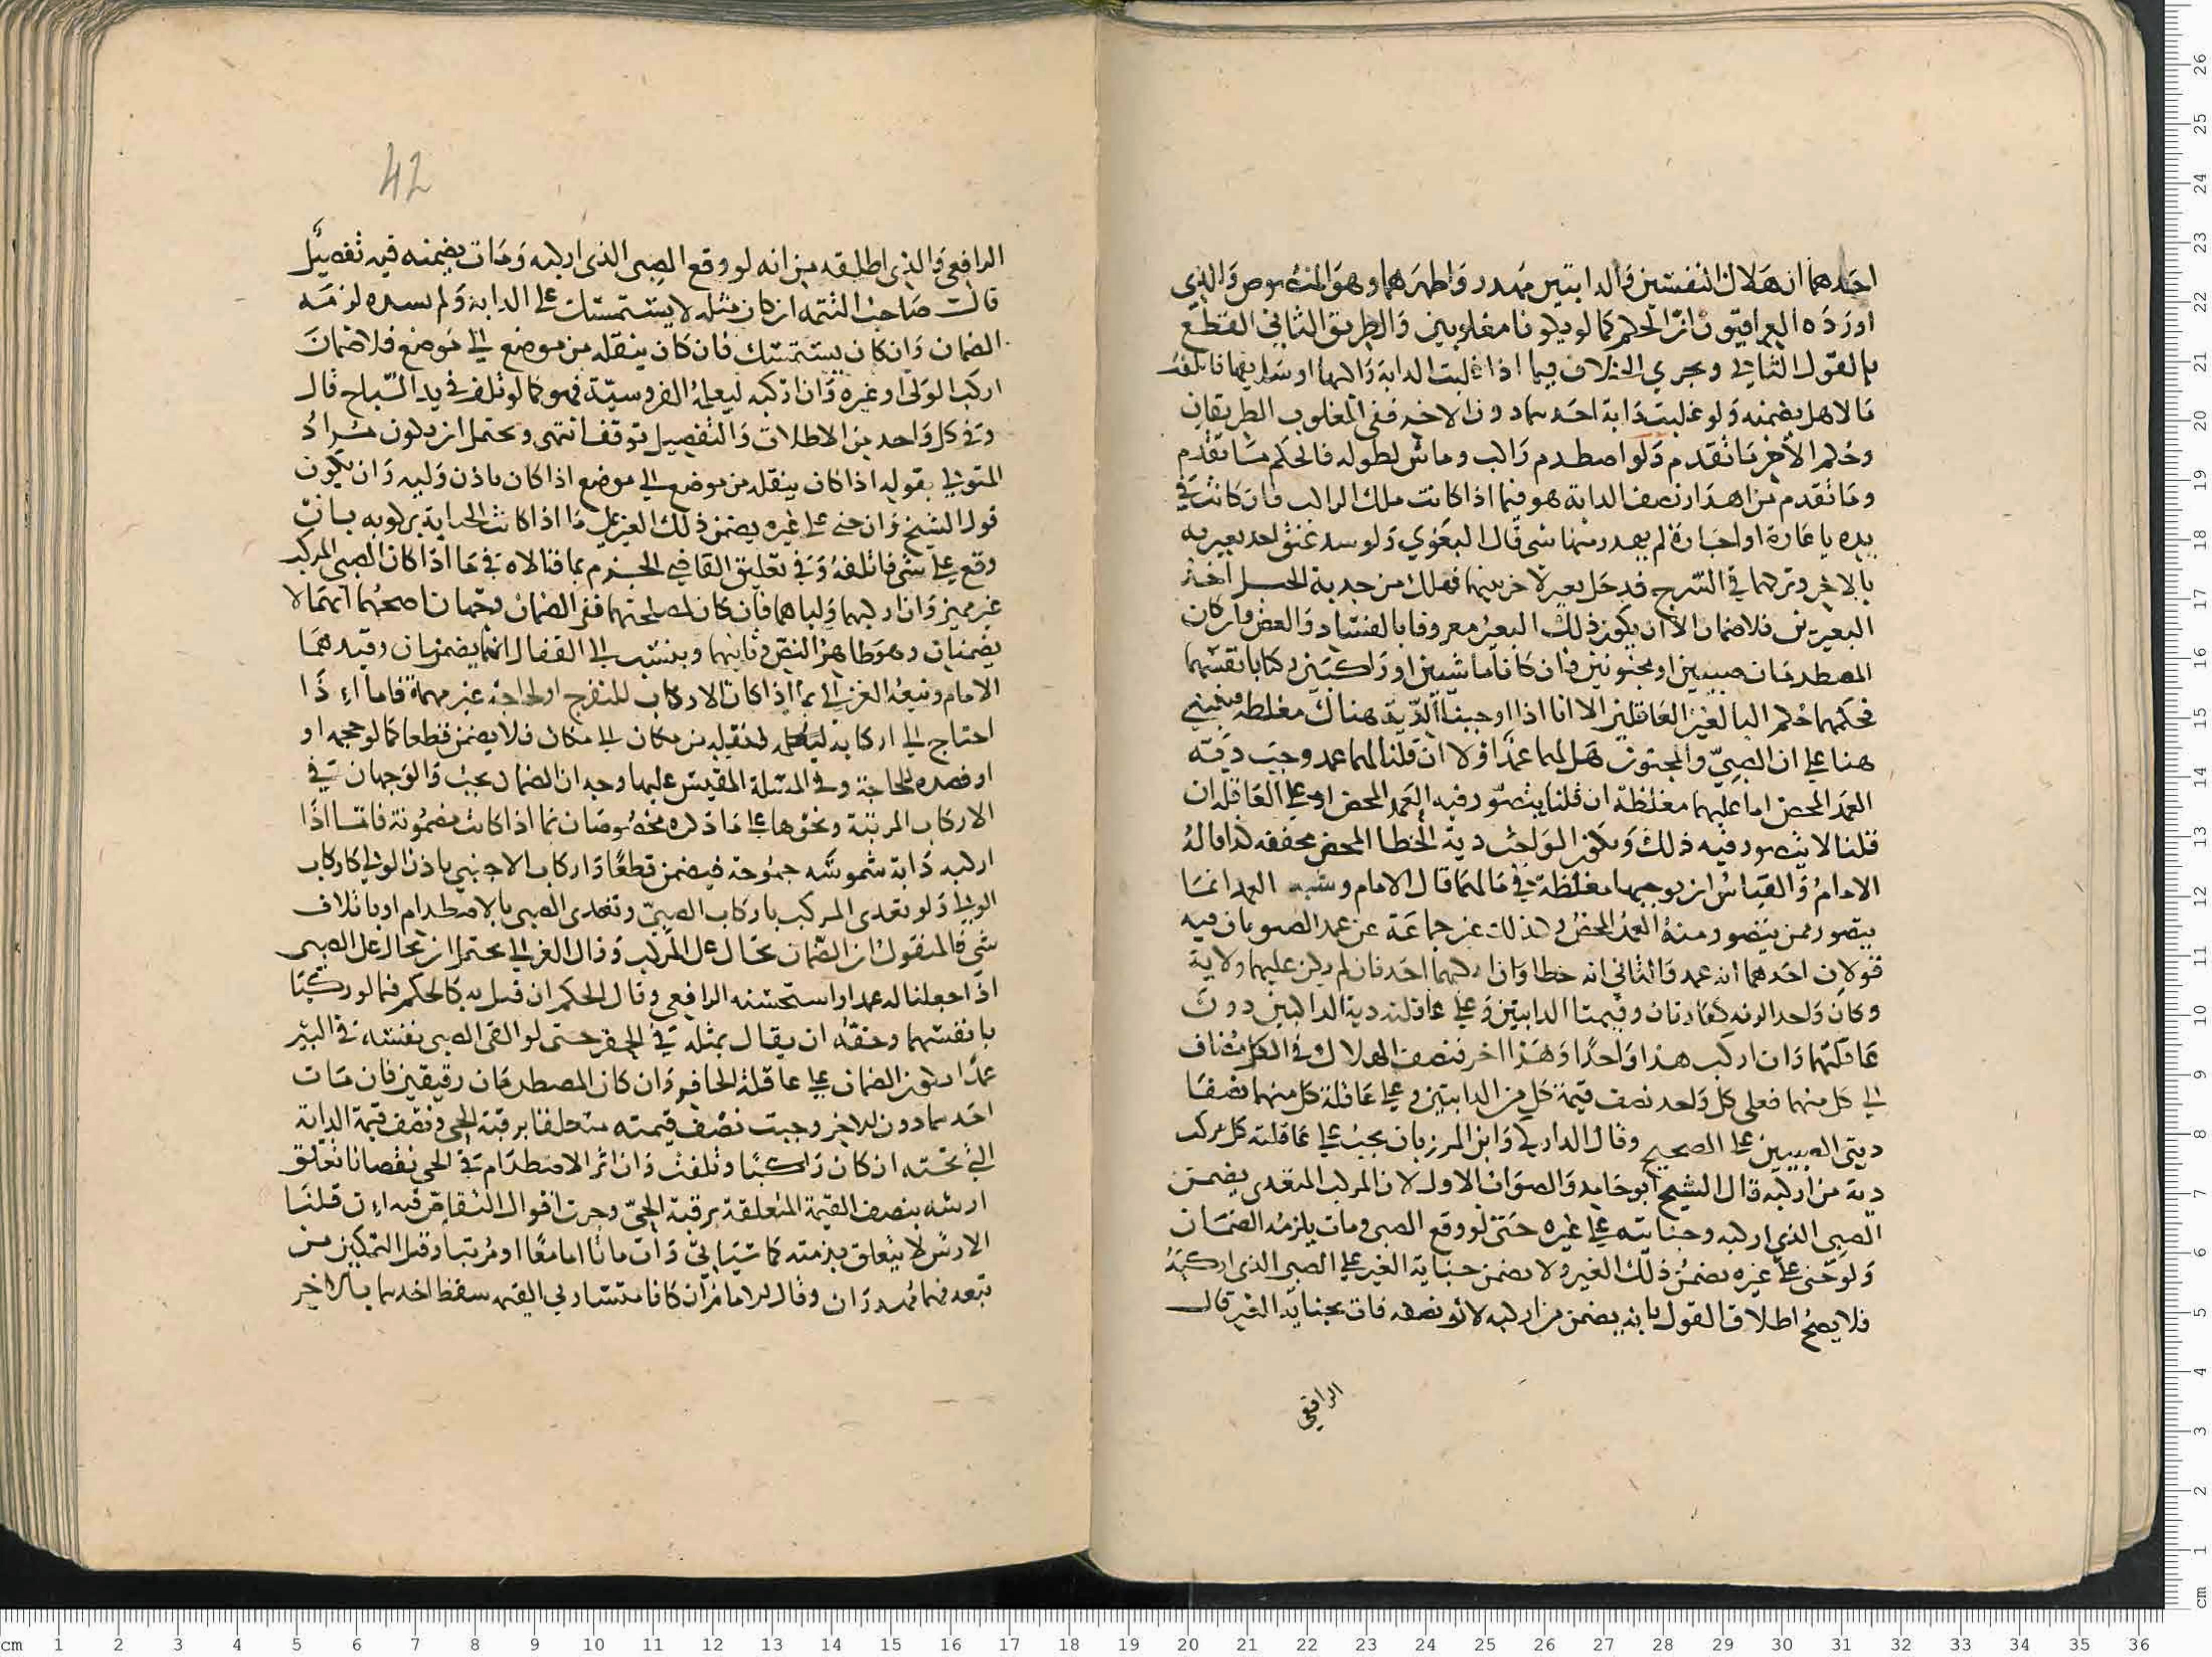 احدهما ان هلاك النفسين والدابتين مهدر واظهرهما وهو المنصوص والذي
اورده العراقيون ان الحكم كما لو يكونا مغلوبين والطريق الثاني القطع
بالقول الثاني ويجري الخلاف فيما اذا غلبت الدابة راكبها او سايقها فاتلفت
مالا هل يضمنه ولو غلبت دابة احدهما دون الاخر ففي المغلوب الطريقان
وحكم الاخر ما تقدم ولو اصطدم راكب وماش لطوله فالحكم ما تقدم
وما تقدم من اهدار نصف الدابة هو فيما اذا كانت ملك الراكب فان كانت في
يده باعارة او اجارة لم يهدر منها شي قال البغوي ولو شد عنق احد بعيريه
بالاخر وتركهما في السرح فدخل بعير لاخر بينهما فهلك من جذبة الحبل احد
البعيرين فلا ضمان الا ان يكون ذلك البعير معروفا بالفساد والعض وان كان
المصطدمان صبيين او مجنونين فان كانا ماشيين او راكبين ركابا بانفسهما
فحكمهما حكم البالغين العاقلين الا انا اذا اوجبنا الدية هناك مغلظة فينبني
هنا على ان الصبي والمجنون هل لهما عمد او لا ان قلنا لهما عمد وجبت دية
العمد المحض اما عليهما مغلظة ان قلنا يتصور فيه العمد المحض او على العاقلة ان
قلنا لا يتصور فيه ذلك ويكون الواجب دية الخطا المحض مخففة كذا قاله
الامام والقياس ان يوجبها مغلظة في مالهما قال الامام وشبه العمد انما
يتصور ممن يتصور منه العمد المحض وكذلك عن جماعة عن عمد الصبي بان فيه
قولان احدهما انه عمد والثاني انه خطا وان اركبهما احد فان لم يكن عليهما ولاية
وكان واحدا لزمه كفارتان وقيمتا الدابتين وعلى عاقلته دية الراكبين دون
عاقلتهما وان اركب هذا واحدا وهذا اخر فنصف الهلاك في الكل مضاف
الى كل منهما فعلى كل واحد نصف قيمة كل من الدابتين وعلى عاقلة كل منهما نصفا
ديتي الصبيين على الصحيح وقال الداركي وابن المرزبان يجب على عاقلة كل مركب
دية من اركبه قال الشيخ ابو حامد والصواب الاول لان المركب المتعدي يضمن
الصبي الذي اركبه وجنايته على غيره حتى لو وقع الصبي ومات يلزمه الضمان
ولو جنى على غيره يضمن ذلك الغير ولا يضمن جناية الغير على الصبي الذي اركبه
فلا يصح اطلاق القول بانه يضمن من اركبه لان نصفه فات بجناية الغير قال
الرافعي
42
الرافعي والذي اطلقه من انه لو وقع الصبي الذي اركبه ومات يضمنه فيه تفصيل
قال صاحب التتمة ان كان مثله لا يستمسك على الدابة ولم يشده لزمه
الضمان وان كان يستمسك فان كان ينقله من موضع الى موضع فلا ضمان
اركبه الولي او غيره وان اركبه ليعلمه الفروسية فهو كما لو تلف في يد السباح قال
وفي كل واحد من الاطلاق والتفصيل توقف انتهى ويحتمل ان يكون مراد
المتولي بقوله اذا كان ينقله من موضع الى موضع اذا كان باذن وليه وان يكون
قول الشيخ وان جنى على غيره يضمن ذلك الغير على ما اذا كانت الجناية بركوبه بان
وقع على شي فاتلفه وفي تعليق القاضي الجزم بما قالاه في ما اذا كان الصبي المركب
غير مميز وان اركبهما ولياهما فان كان لمصلحتهما ففي الضمان وجهان اصحهما انهما لا
يضمنان وهو ظاهر النص وثانيهما وينسب الى القفال انهما يضمنان وقيدهما
الامام وتبعه الغزالي بما اذا كان الاركاب للتفرج او لحاجة غير مهمة فاما اذا
احتاج الى اركابه لنقله من مكان الى مكان فلا يضمن قطعا كما لو حجمه او
او فصده لحاجة وفي المسئلة المقيس عليها وجه ان الضمان يجب والوجهان في
الاركاب المرتبة ونحوها على ما ذكره مخصوصان بما اذا كانت مضمونة فاما اذا
اركبه دابة شموسه جموحة فيضمن قطعا واركاب الاجنبي باذن الولي كاركاب
الولي ولو تعدى المركب باركاب الصبي وتعدى الصبي بالاصطدام او باتلاف
شي فالمنقول ان الضمان يحال على المركب وقال الغزالي يحتمل ان يحال على الصبي
اذا جعلنا له عمدا واستحسنه الرافعي وقال الحكم ان قيل به كالحكم فيما لو ركبا
بانفسهما وحقه ان يقال بمثله في الحفر حتى لو القى الصبي نفسه في البير
عمدا يكون الضمان على عاقلة الحافر وان كان المصطدمان رقيقين فان مات
احدهما دون الاخر وجبت نصف قيمته متعلقا برقبة الحي ونصف قيمة الدابة
التي تحته ان كان راكبا وتلفت وان اثر الاصطدام في الحي نقصانا تعلق
ارشه بنصف القيمة المتعلقة برقبة الحي وجرت اقوال التقاص فيه ان قلنا
الارش لا يتعلق بذمته كما سياتي وان ماتا اما معا او مرتبا وقبل التمكن من
بيعه فهما مهدران وقال الامام ان كانا متساويي القيمه سقط احدهما بالاخر